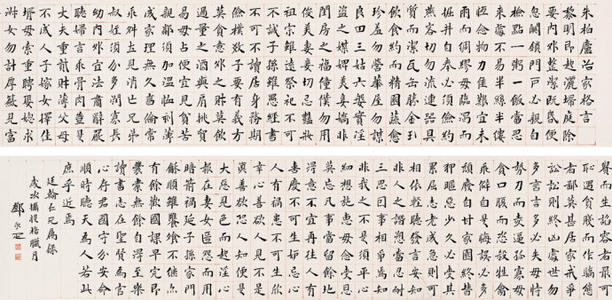 朱柏廬治家格言
黎明即起灑掃庭除
要內外整潔既昏便
息關鎖門戶必親自
檢點一粥一飯當思
來處不易半絲半縷
恆念物力維艱宜未
雨而綢繆毋臨渴而
掘井自奉必須儉約
燕客切勿流連器具
質而潔瓦缶勝金玉
飲食約而精園蔬愈
珍羞勿營華屋勿謀
良田三姑六婆實淫
盜之媒婢美妾嬌非
閨房之福僮僕勿用
俊美妻妾切忌豔妝
祖宗雖遠祭祀不可
不誠子孫雖愚經書
不可不讀居身務期
儉樸教子要有義方
莫貪意外之財莫飲
過量之酒與肩挑貿
易毋佔便宜見貧苦
親鄰須加溫恤刻薄
成家理無久享倫常
乖舛立見消亡兄弟
叔姪須分多潤寡長
幼內外宜法肅辭嚴
聽婦言乖骨肉豈是
丈夫重貲財薄父母
不成人子嫁女擇佳
婿毋索重聘娶媳求
淑女勿計厚奩見富
貴而生諂容者最可
恥遇貧窮而作驕態
者賤莫甚居家戒爭
訟訟則終凶處世戒
多言言多必失毋恃
勢力而凌逼孤寡毋
貪口腹而恣殺牲禽
乖僻自是悔誤必多
頹惰自甘家園終替
狎暱惡少久必受其
累屈志老成急則可
相依輕聽發言安知
非人之譖愬當忍耐
三思因事相爭焉知
非我之不是須平心
細想施惠毋念受恩
莫忘凡事當留餘地
得意不宜再往人有
喜慶不可生妒忌心
人有禍患不可生喜
幸心善欲人見不是
真善惡恐人知便是
大惡見色而起淫心
報在妻女匿怨而用
暗箭禍延子孫家門
和順雖饔飧不繼亦
有餘歡國課早完即
囊橐無餘自得至樂
讀書志在聖賢為官
心存君國守分安命
順時聽天為人若此
庶乎近焉
廷翰仁兄屬錄
歲次攝提格臘月
鄧